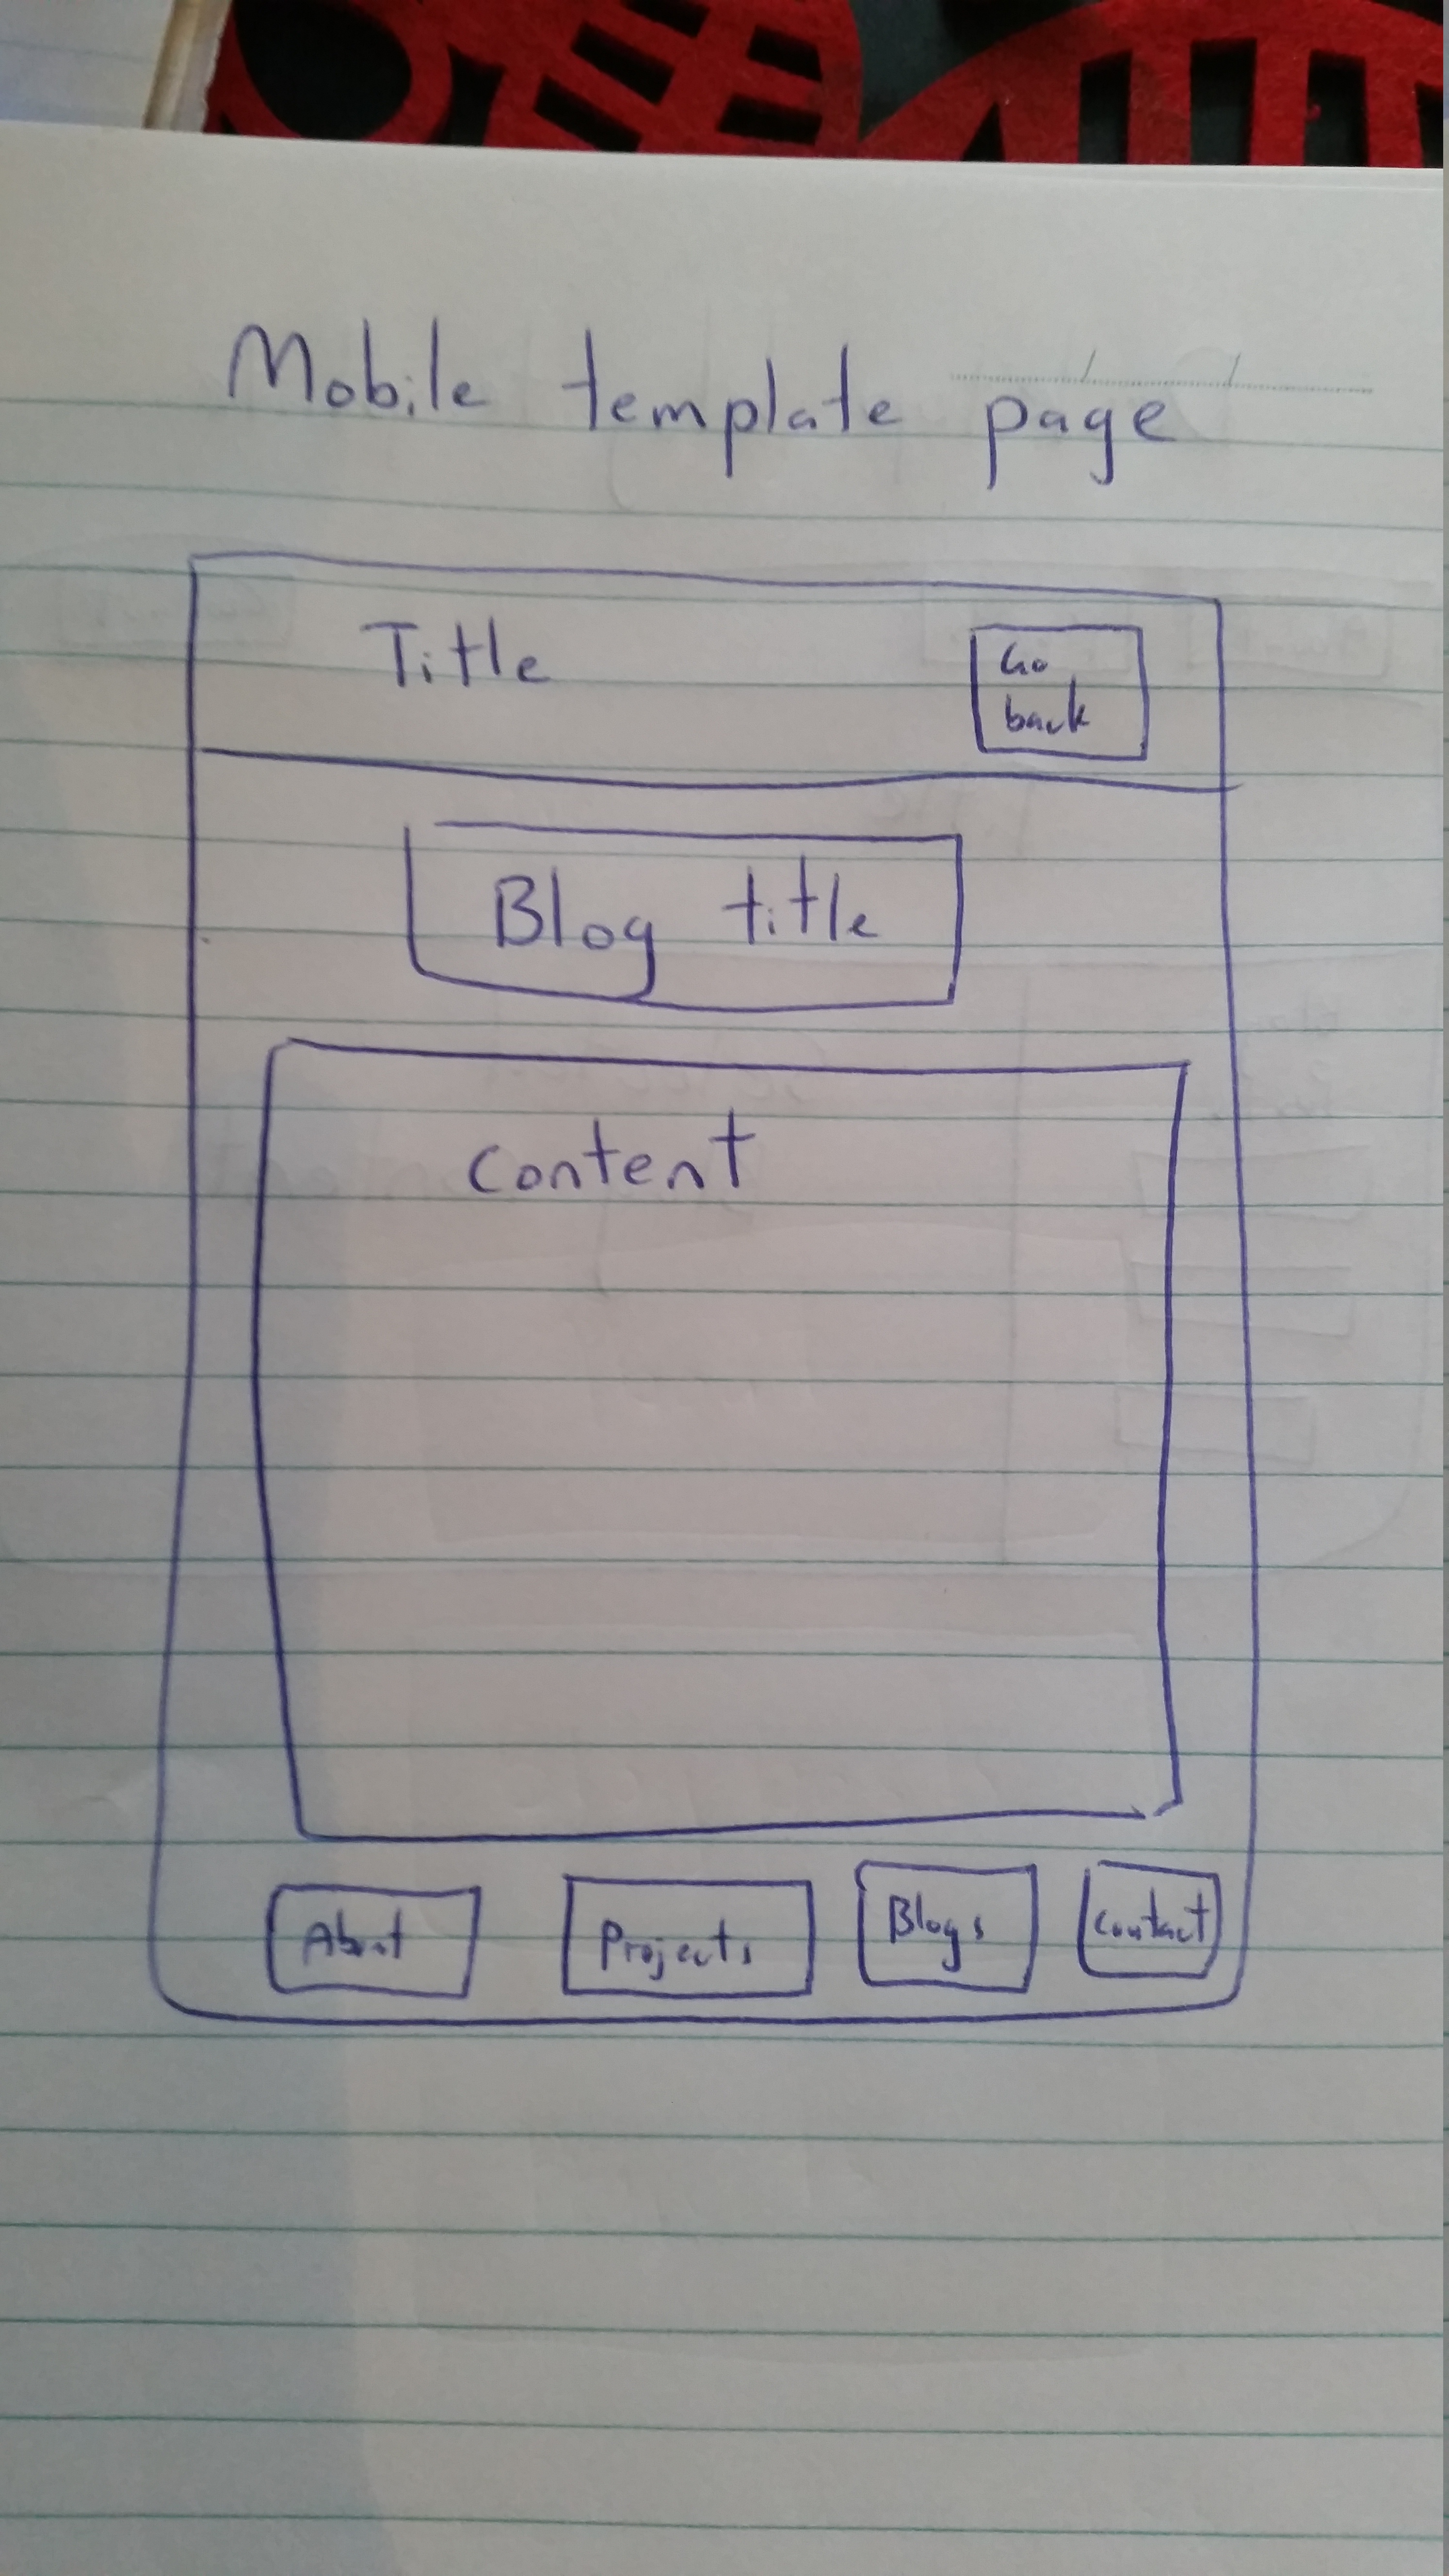 Mobile template page
Title
Go
back
Blog title
Content
About
Projects
Blogs
Contact